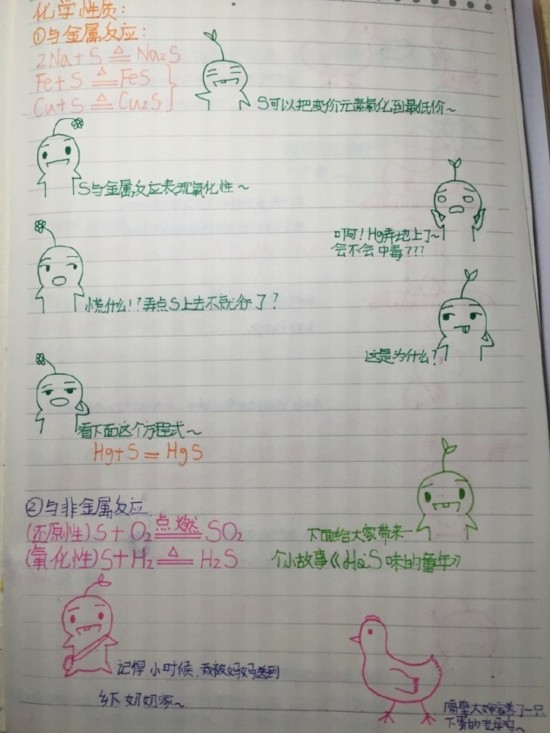 化学性质:
①与金属反应:
2Na+S △== Na₂S
Fe+S △== FeS
Cu+S △== Cu₂S
S可以把变价元素氧化到最低价~
S与金属反应表现氧化性~
啊!Hg弄地上了~
会不会中毒???
慌什么!?弄点S上去不就行了?
这是为什么?
看下面这个方程式~
Hg+S=HgS
②与非金属反应
(还原性)S+O₂ 点燃== SO₂
(氧化性)S+H₂ △== H₂S
下面给大家带来一
个小故事《H₂S味的童年》
记得小时候,我被妈妈送到
乡下奶奶家~
隔壁大婶家养了一只
下蛋的老母鸡~